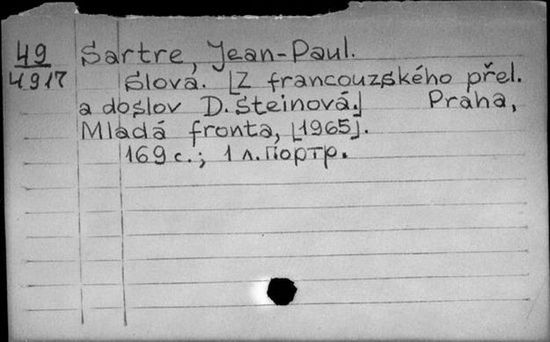 49
4917
Sartre, Jean-Paul.
Slova. [Z francouzského přel.
a doslov D. Steinová.] Praha,
Mladá fronta, [1965].
169 с.; 1 л. портр.